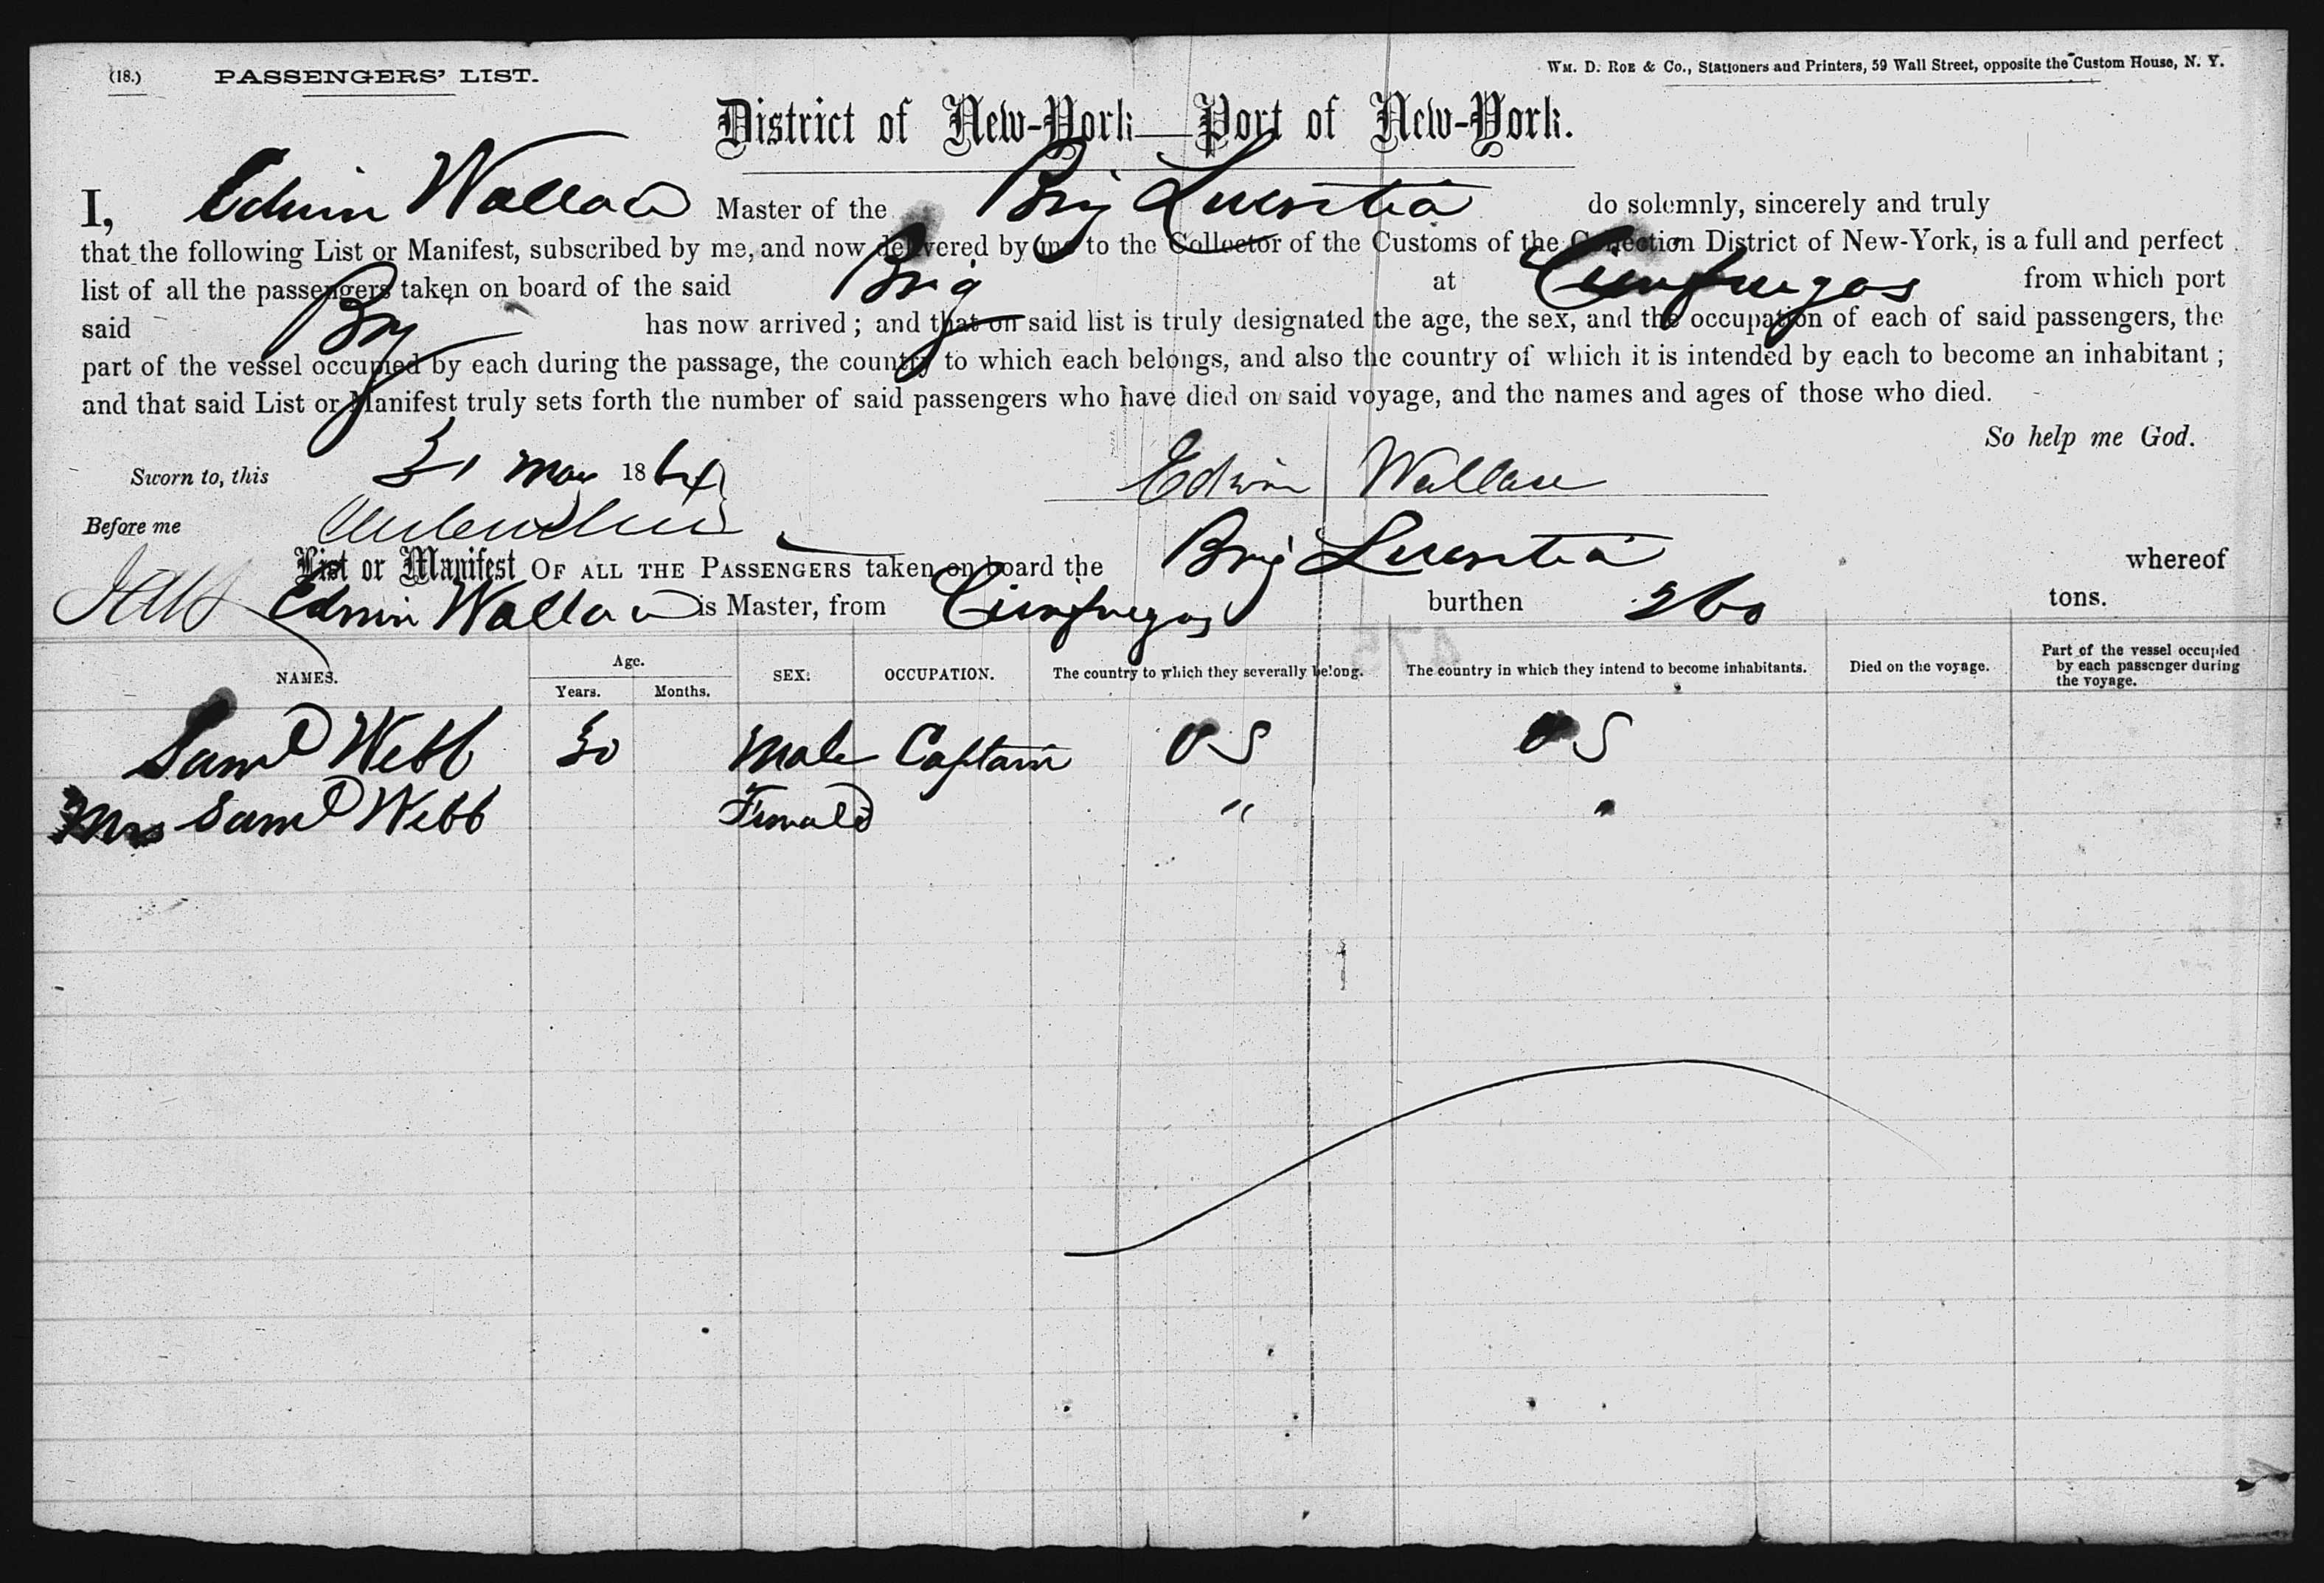 (18.) PASSENGERS' LIST. WM. D. ROE & Co., Stationers and Printers, 59 Wall Street, opposite the Custom House, N. Y.
District of New-York—Port of New-York.
I, Edwin Wallace Master of the Brig Lucretia do solemnly, sincerely and truly
that the following List or Manifest, subscribed by me, and now delivered by me to the Collector of the Customs of the Collection District of New-York, is a full and perfect
list of all the passengers taken on board of the said Brig at Cienfuegos from which port
said Brig has now arrived; and that on said list is truly designated the age, the sex, and the occupation of each of said passengers, the
part of the vessel occupied by each during the passage, the country to which each belongs, and also the country of which it is intended by each to become an inhabitant;
and that said List or Manifest truly sets forth the number of said passengers who have died on said voyage, and the names and ages of those who died.
So help me God.
Sworn to, this 31 May 1864 Edwin Wallace
Before me
List or Manifest OF ALL THE PASSENGERS taken on board the Brig Lucretia whereof
Edwin Wallace is Master, from Cienfuegos burthen 260 tons.
NAMES. Age. Years. Months. SEX. OCCUPATION. The country to which they severally belong. The country in which they intend to become inhabitants. Died on the voyage. Part of the vessel occupied by each passenger during the voyage.
Saml Webb 30 Male Captain U S U S
Mrs Saml Webb Female " "